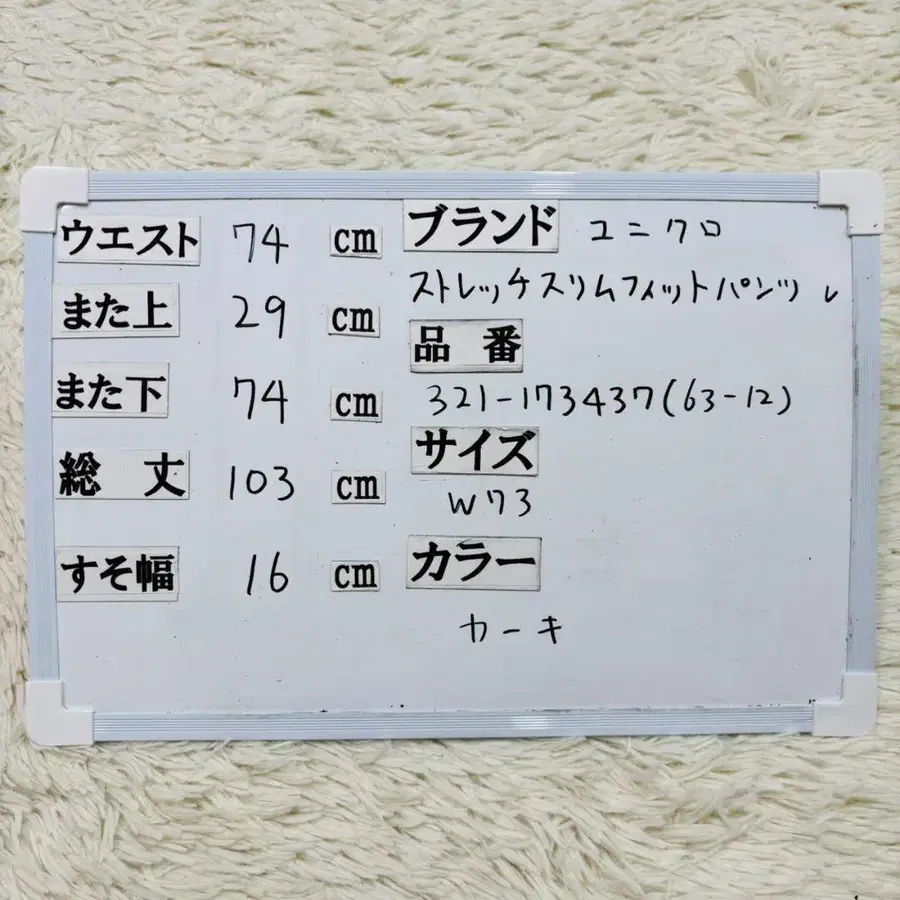 ウエスト 74 cm
また上 29 cm
また下 74 cm
総丈 103 cm
すそ幅 16 cm
ブランド ユニクロ
ストレッチスリムフィットパンツ レ
品番
321-173437(63-12)
サイズ
W73
カラー
カーキ